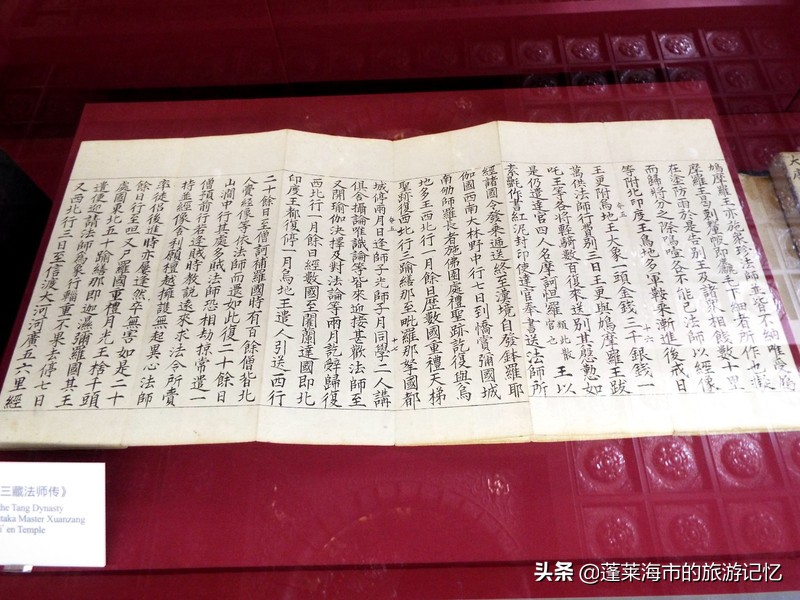 鳩摩羅王亦施衆珍法師並皆不納唯受鳩
摩羅王曷剌釐帔即麤毛下細者所作也擬
在塗防雨於是告別王及諸衆相餞數十里
而歸將分之際嗚噎各不能已法師以經像
等附北印度王烏地多軍鞍乘漸進後戒日
王更附烏地王大象一頭金錢三千銀錢一
萬供法師行費別三日王更與鳩摩羅王跋
吒王等各將輕騎數百復來送別其慇懃如
是仍遣達官四人名摩訶怛羅類此散官也王以
素氎作書紅泥封印使達官奉書送法師所
經諸國令發乘遞送終至漢境自發鉢羅耶
伽國西南大林野中行七日到憍賞彌國城
南劬師羅長者施佛園處禮聖跡訖復與烏
地多王西北行一月餘日歷數國重禮天梯
聖跡復西北行三踰繕那至毗羅那拏國都
城停兩月日逢師子光師子月同學二人講
俱舍攝論唯識論等皆來迎接甚歡法師至
又開瑜伽決擇及對法論等兩月訖辭歸復
西北行一月餘日經數國至闍闌達國即北
印度王都復停一月烏地王遣人引送西行
二十餘日至僧訶補羅國時有百餘僧皆北
人賫經像等依法師而還如此復二十餘日
山澗中行其處多賊法師恐相劫掠常遣一
僧預前行若逢賊時教說遠來求法今所賫
持並經像舍利願檀越擁護無起異心法師
率徒侶後進時亦屢逢然卒無害如是二十
餘日行至呾叉尸羅國重禮月光王捨千頭
處國東北五十踰繕那即迦濕彌羅國其王
遣使迎請法師爲象行輜重不果去停七日
又西北行三日至信渡大河河廣五六里經
三藏法师传》
he Tang Dynasty
itaka Master Xuanzang
en Temple
头条 @蓬莱海市的旅游记忆